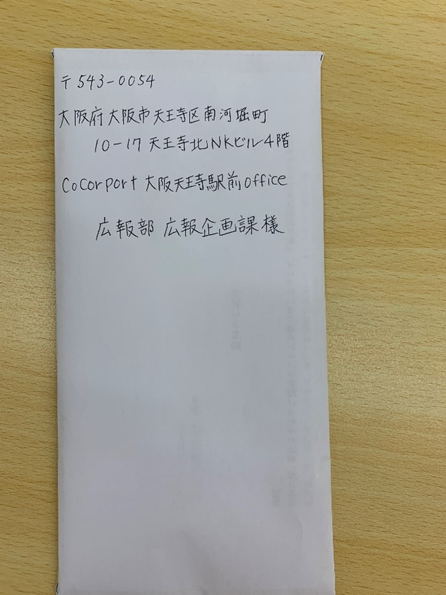 〒543-0054
大阪府大阪市天王寺区南河堀町
10-17 天王寺北NKビル4階
CoCorport 大阪天王寺駅前office
広報部 広報企画課様